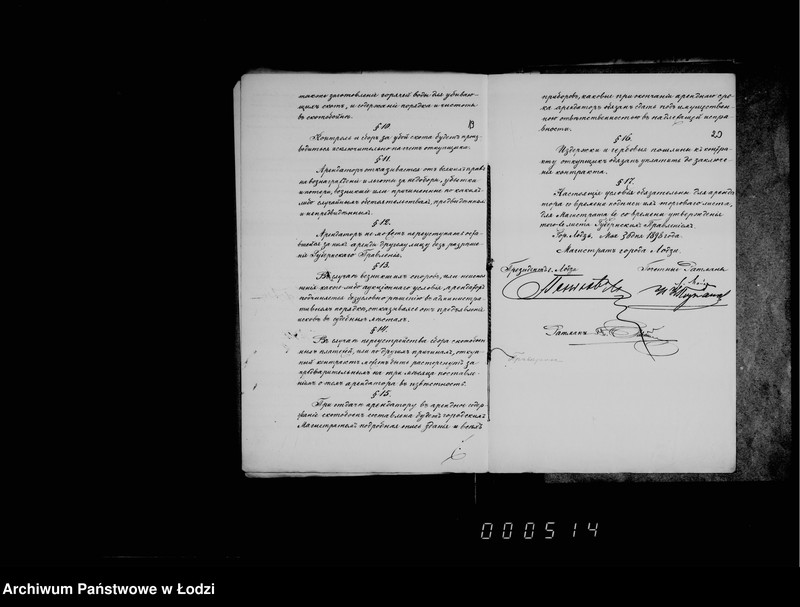 также заготовленія горячей воды для убиваю-
щихъ скотъ, и содержанія порядка и чистоты
въ скотобойнѣ.
§ 10.
Контроль и сборъ за убой скота будетъ произ-
водиться исключительно на счетъ откупщика.
§ 11.
Арендаторъ отказывается отъ всякихъ правъ
на вознагражденія и льготы за недоборы, убытки
и потери, возникшія или причиненныя по какимъ
либо случайнымъ обстоятельствамъ, предвидѣннымъ
и непредвидѣннымъ.
§ 12.
Арендаторъ не можетъ переуступать остав-
шейся за нимъ аренды другому лицу безъ разрѣше-
нія Губернскаго Правленія.
§ 13.
Въ случаѣ возникшихъ споровъ, или
какого либо аукціоннаго условія, арендаторъ
подчиняется безусловно рѣшенію въ администра-
тивномъ порядкѣ, отказываясь отъ предъявленія
исковъ въ судебныхъ мѣстахъ.
§ 14.
Въ случаѣ переустройства сбора скотобой-
ныхъ платежей, или по другимъ причинамъ, откуп-
ный контрактъ можетъ быть расторгнутъ за
предварительнымъ на три мѣсяца поставле-
ніемъ о томъ арендатора въ извѣстность.
§ 15.
При отдачѣ арендатору въ арендное содер-
жаніе скотобоенъ составлена будетъ городскимъ
Магистратомъ подробная опись зданія и всѣхъ
приборовъ, каковые при окончаніи аренднаго сро-
ка арендаторъ обязанъ сдать подъ имуществен-
ною отвѣтственностью въ надлежащей исправ-
ности.
23
§ 16.
Издержки и гербовыя пошлины къ контрак-
ту откупщикъ обязанъ уплатить до заключе-
нія контракта.
§ 17.
Настоящія условія обязательны для аренда-
тора со времени подписи имъ торговаго листа,
для Магистрата же со времени утвержденія
того же листа Губернскимъ Правленіемъ.
Гор. Лодзь, Мая дня 1895 года.
Магистратъ города Лодзи.
Президентъ г. Лодзи
Почетные Ратманы
Ратманъ
000514
Archiwum Państwowe w Łodzi